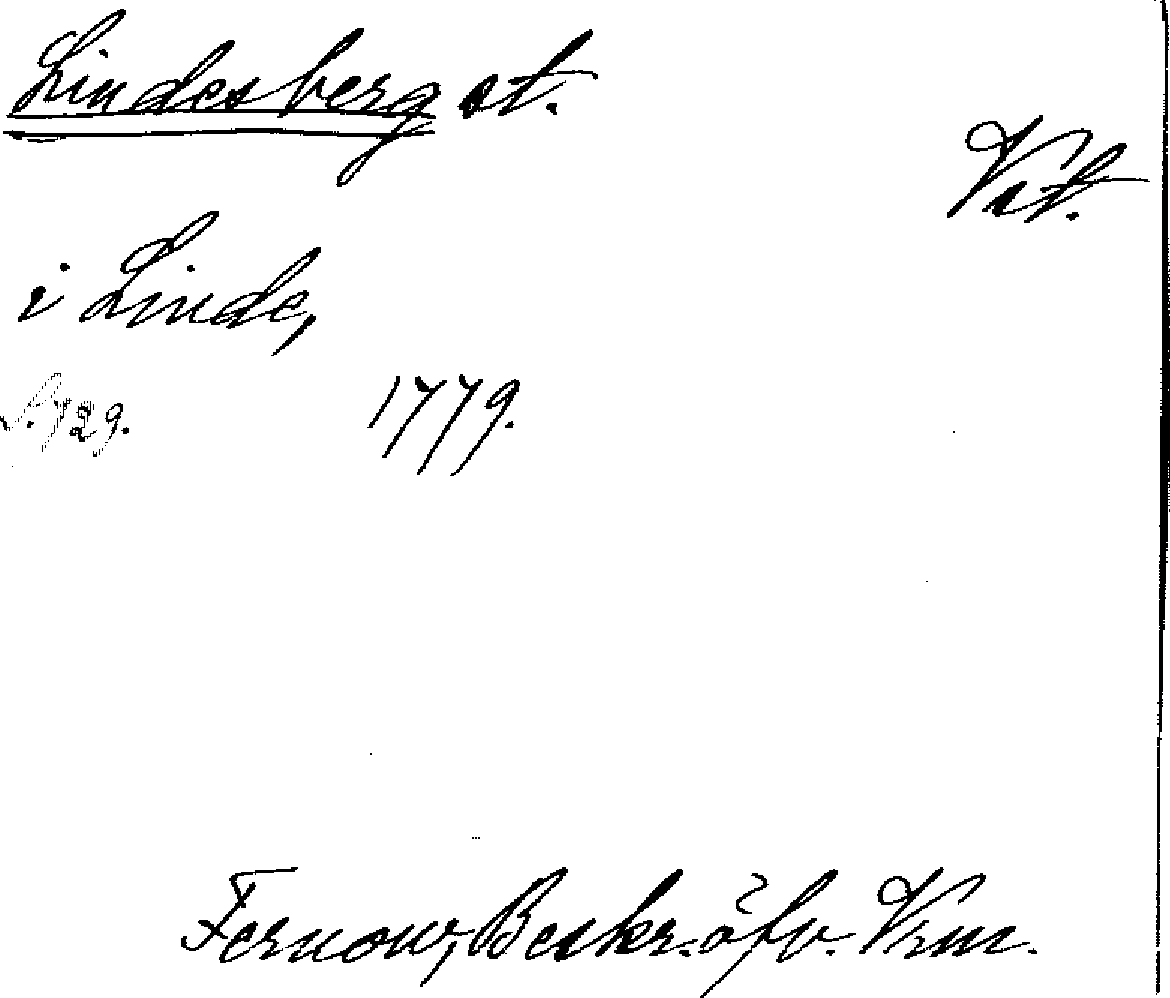 Lindesberg st.
Vst.
i Linde,
S. 729. 1779.
Fernow, Beskr. öfv. Vrm.